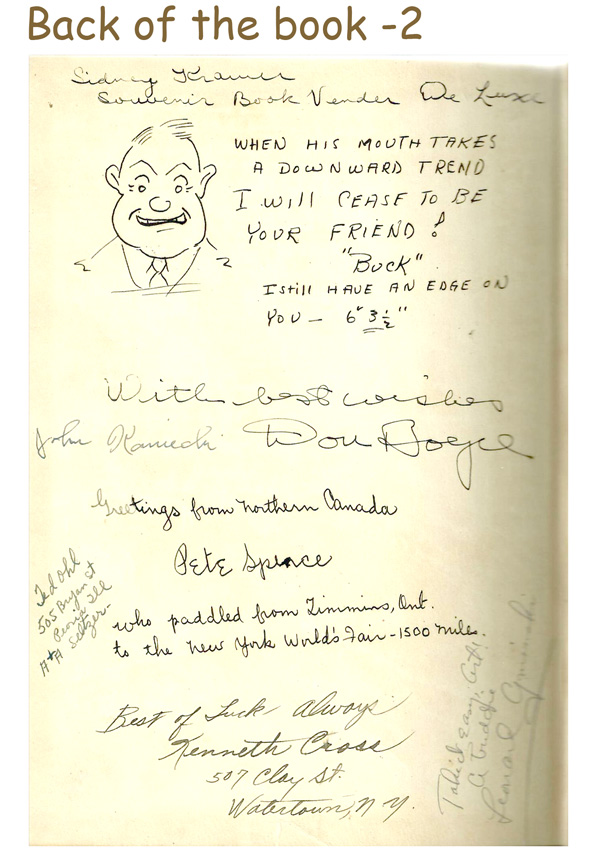 Back of the book -2
Sidney Kramer
Souvenir Book Vender De Luxe
WHEN HIS MOUTH TAKES
A DOWNWARD TREND
I will CEASE TO BE
YOUR FRIEND!
"BUCK"
I still HAVE AN EDGE ON
YOU — 6' 3½"
With best wishes
John Kaniecki
Don Boyce
Greetings from Northern Canada
Pete Spence
who paddled from Timmins, Ont.
to the New York World's Fair - 1500 miles.
Ted Ohl
505 Bryan St
Peoria Ill
A+A Seltzer-
Best of Luck Always
Kenneth Cross
507 Clay St.
Watertown, N.Y.
Take it easy, Art!
Leonard